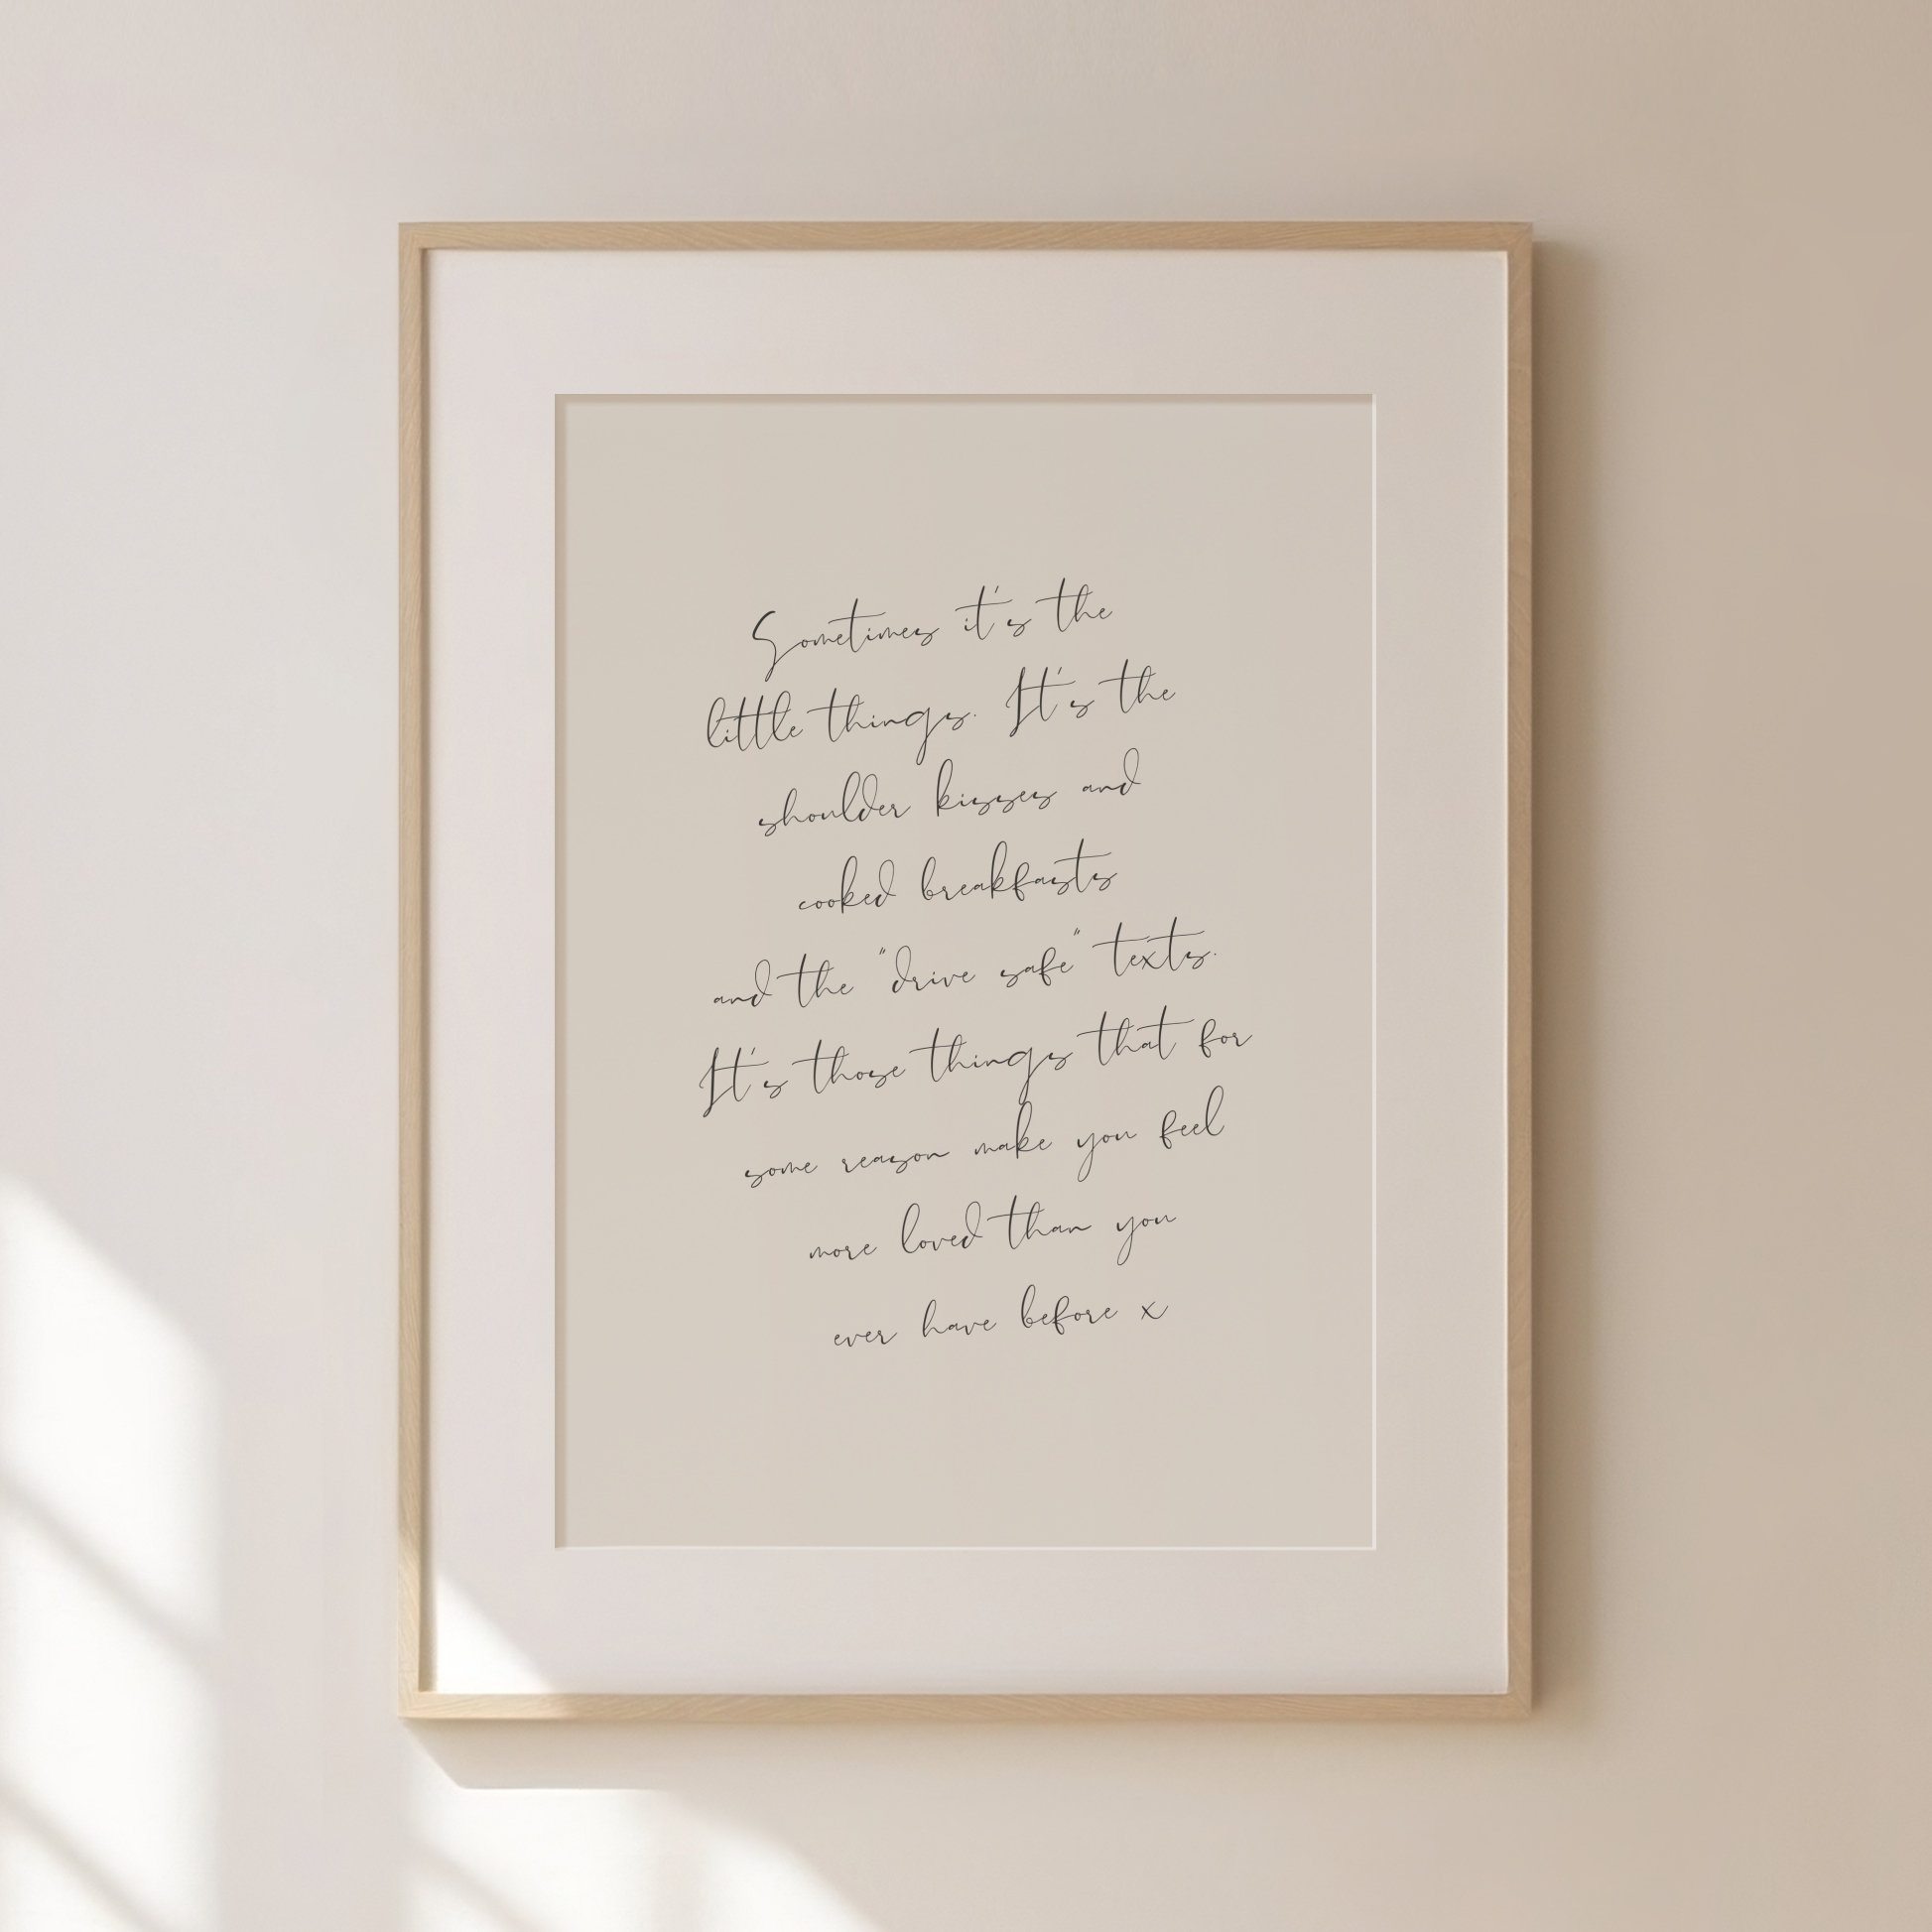 Sometimes it's the
little things. It's the
shoulder kisses and
cooked breakfasts
and the "drive safe" texts.
It's those things that for
some reason make you feel
more loved than you
ever have before x